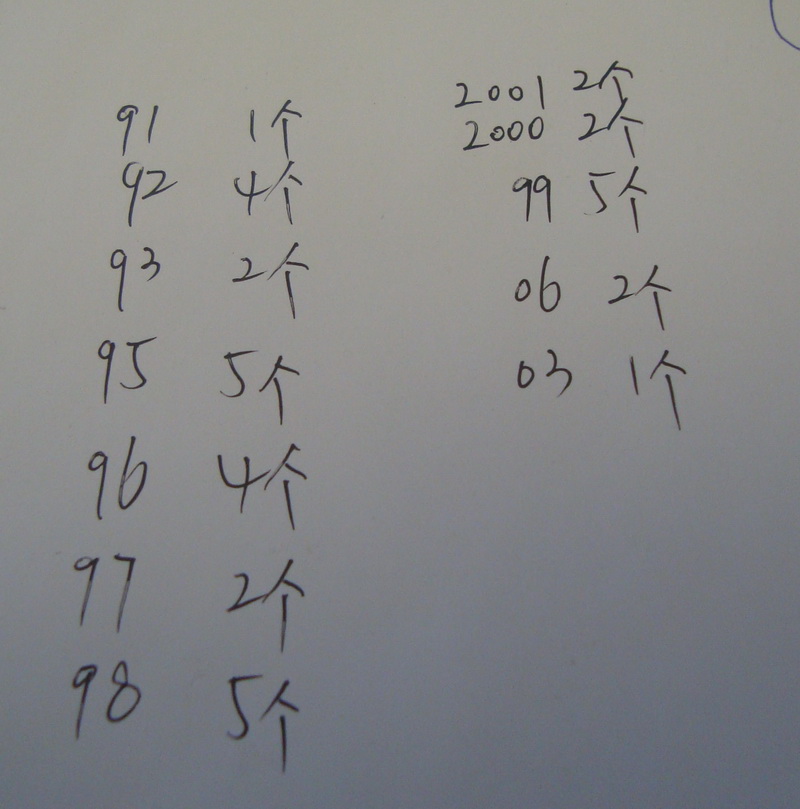 91 1个
92 4个
93 2个
95 5个
96 4个
97 2个
98 5个
2001 2个
2000 2个
99 5个
06 2个
03 1个